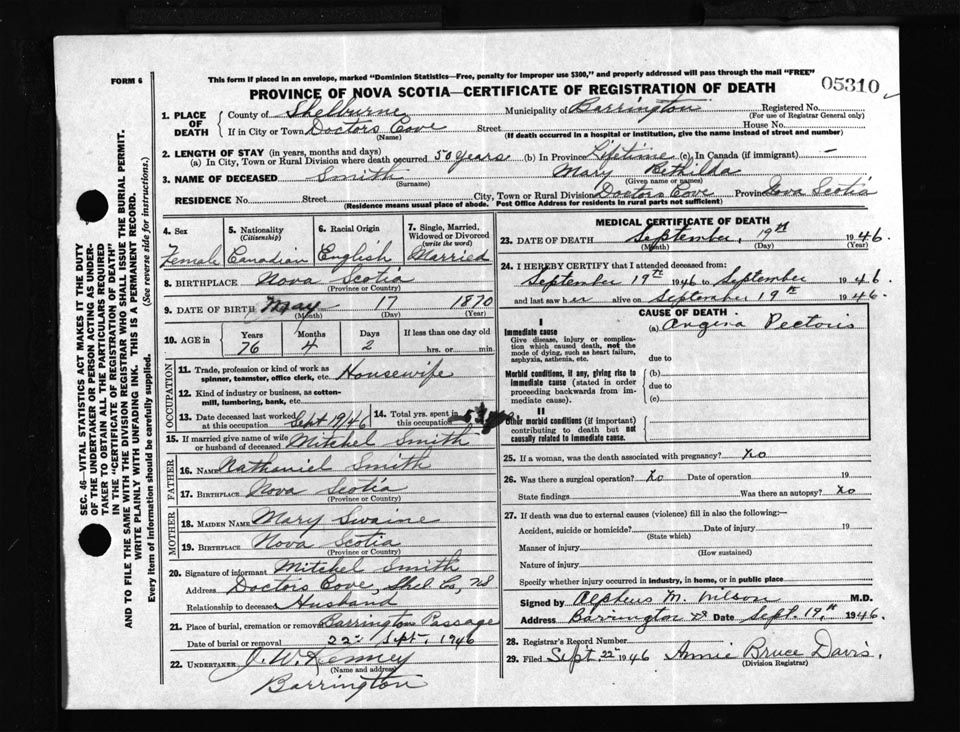 FORM 6
This form if placed in an envelope, marked "Dominion Statistics—Free, penalty for improper use $300," and properly addressed will pass through the mail "FREE"
PROVINCE OF NOVA SCOTIA—CERTIFICATE OF REGISTRATION OF DEATH
05310
1. PLACE OF DEATH County of Shelburne Municipality of Barrington Registered No. (For use of Registrar General only)
If in City or Town Doctors Cove Street House No.
(Name) (If death occurred in a hospital or institution, give the name instead of street and number)
2. LENGTH OF STAY (in years, months and days)
(a) In City, Town or Rural Division where death occurred 50 years (b) In Province Lifetime (c) In Canada (if immigrant) —
3. NAME OF DECEASED Smith Mary Bethilda
(Surname) (Given name or names)
RESIDENCE No. Street City, Town or Rural Division Doctors Cove Province Nova Scotia
(Residence means usual place of abode. Post Office Address for residents in rural parts not sufficient)
4. Sex Female
5. Nationality (Citizenship) Canadian
6. Racial Origin English
7. Single, Married, Widowed or Divorced (write the word) Married
8. BIRTHPLACE Nova Scotia
(Province or Country)
9. DATE OF BIRTH May 17 1870
(Month) (Day) (Year)
10. AGE in Years 76 Months 4 Days 2 If less than one day old hrs. or min.
OCCUPATION
11. Trade, profession or kind of work as spinner, teamster, office clerk, etc. Housewife
12. Kind of industry or business, as cotton-mill, lumbering, bank, etc.
13. Date deceased last worked at this occupation Sept 19/46
14. Total yrs. spent in
15. If married give name of wife or husband of deceased Mitchel Smith
FATHER
16. NAME Nathaniel Smith
17. BIRTHPLACE Nova Scotia
(Province or Country)
MOTHER
18. MAIDEN NAME Mary Swaine
19. BIRTHPLACE Nova Scotia
(Province or Country)
20. Signature of informant Mitchel Smith
Address Doctors Cove, Shel Co, NS
Relationship to deceased Husband
21. Place of burial, cremation or removal Barrington Passage
Date of burial or removal 22nd Sept, 1946
22. UNDERTAKER J. W. Kenney
(Name and address)
Barrington
MEDICAL CERTIFICATE OF DEATH
23. DATE OF DEATH September, 19th 1946.
(Month) (Day) (Year)
24. I HEREBY CERTIFY that I attended deceased from:
September 19th 1946 to September 1946
and last saw her alive on September 19th 1946.
CAUSE OF DEATH
I
Immediate cause (a) Angina Pectoris
Give disease, injury or complication which caused death, not the mode of dying, such as heart failure, asphyxia, asthenia, etc.
due to
Morbid conditions, if any, giving rise to immediate cause (stated in order proceeding backwards from immediate cause).
(b)
due to
(c)
II
Other morbid conditions (if important) contributing to death but not causally related to immediate cause.
25. If a woman, was the death associated with pregnancy? No
26. Was there a surgical operation? No Date of operation 19
State findings Was there an autopsy? No
27. If death was due to external causes (violence) fill in also the following:—
Accident, suicide or homicide? Date of injury 19
(State which)
Manner of injury
(How sustained)
Nature of injury
Specify whether injury occurred in industry, in home, or in public place
Signed by Alpheus M. Wilson M.D.
Address Barrington NS Date Sept. 19th, 1946.
28. Registrar's Record Number
29. Filed Sept. 22nd 1946 Annie Bruce Davis.
(Division Registrar)
SEC. 46—VITAL STATISTICS ACT MAKES IT THE DUTY
OF THE UNDERTAKER OR PERSON ACTING AS UNDER-
TAKER TO OBTAIN ALL THE PARTICULARS REQUIRED
IN THE "CERTIFICATE OF REGISTRATION OF DEATH"
AND TO FILE THE SAME WITH THE DIVISION REGISTRAR WHO SHALL ISSUE THE BURIAL PERMIT.
WRITE PLAINLY WITH UNFADING INK. THIS IS A PERMANENT RECORD.
Every item of information should be carefully supplied. (See reverse side for instructions.)